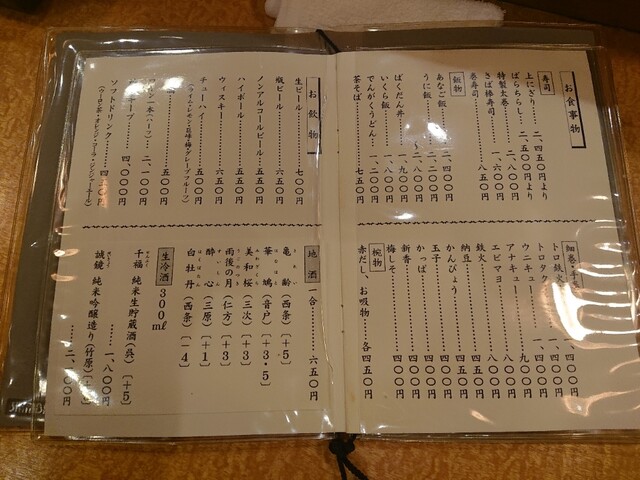 お食事物
寿司
上にぎり… 二、四五〇円より
ばらちらし… 二、五〇〇円より
特製太巻… 二、八〇〇円
さば棒寿司… 一、六〇〇円
巻寿司… 八五〇円
飯物
あなご飯… 二、四〇〇円
うに飯… 二、二〇〇円
〜二、八〇〇円
ばくだん丼… 一、九〇〇円
いくら飯… 一、八〇〇円
でんがくうどん… 一、二〇〇円
茶そば… 七五〇円
細巻・手巻
トロ鉄火… 一、四〇〇円
トロタク… 一、四〇〇円
ウニキュー…
アナキュー… 九〇〇円
エビマヨ… 八〇〇円
鉄火… 八〇〇円
納豆… 五五〇円
かんぴょう… 四五〇円
玉子… 四五〇円
かっぱ… 四〇〇円
新香… 四〇〇円
梅しそ… 四〇〇円
椀物
赤だし、お吸物… 各四五〇円
お飲物
生ビール… 七〇〇円
瓶ビール… 六五〇円
ノンアルコールビール… 五五〇円
ハイボール… 五五〇円
ウィスキー… 六五〇円
チューハイ… 五五〇円
(ライム・レモン・巨峰・梅・グレープフルーツ)
五〇〇円
一本(ハーフ)… 二、一〇〇円
キープ… 四、〇〇〇円
ソフトドリンク… 四五〇円
(ウーロン茶・オレンジ・コーラ・ジンジャーエール)
地酒 一合… 六五〇円
亀齢(西条)〔+5〕
華鳩(音戸)〔+3・5〕
美和桜(三次)〔+3〕
雨後の月(仁方)〔+3〕
酔心(三原)〔+1〕
白牡丹(西条)〔-4〕
生冷酒 300mℓ
千福 純米生貯蔵酒(呉)〔+5〕
… 一、八〇〇円
誠鏡 純米吟醸造り(竹原)
… 二、一〇〇円